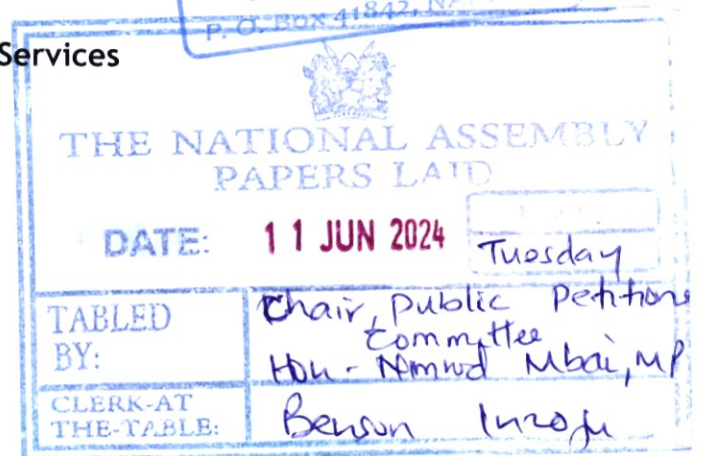 P. O. Box 41842, N
Services
THE NATIONAL ASSEMBLY
PAPERS LAID
DATE: 11 JUN 2024 Tuesday
TABLED BY: Chair, Public Petitions
Committee
Hon. Nimrod Mbai, MP
CLERK-AT THE-TABLE: Benson Inzofu